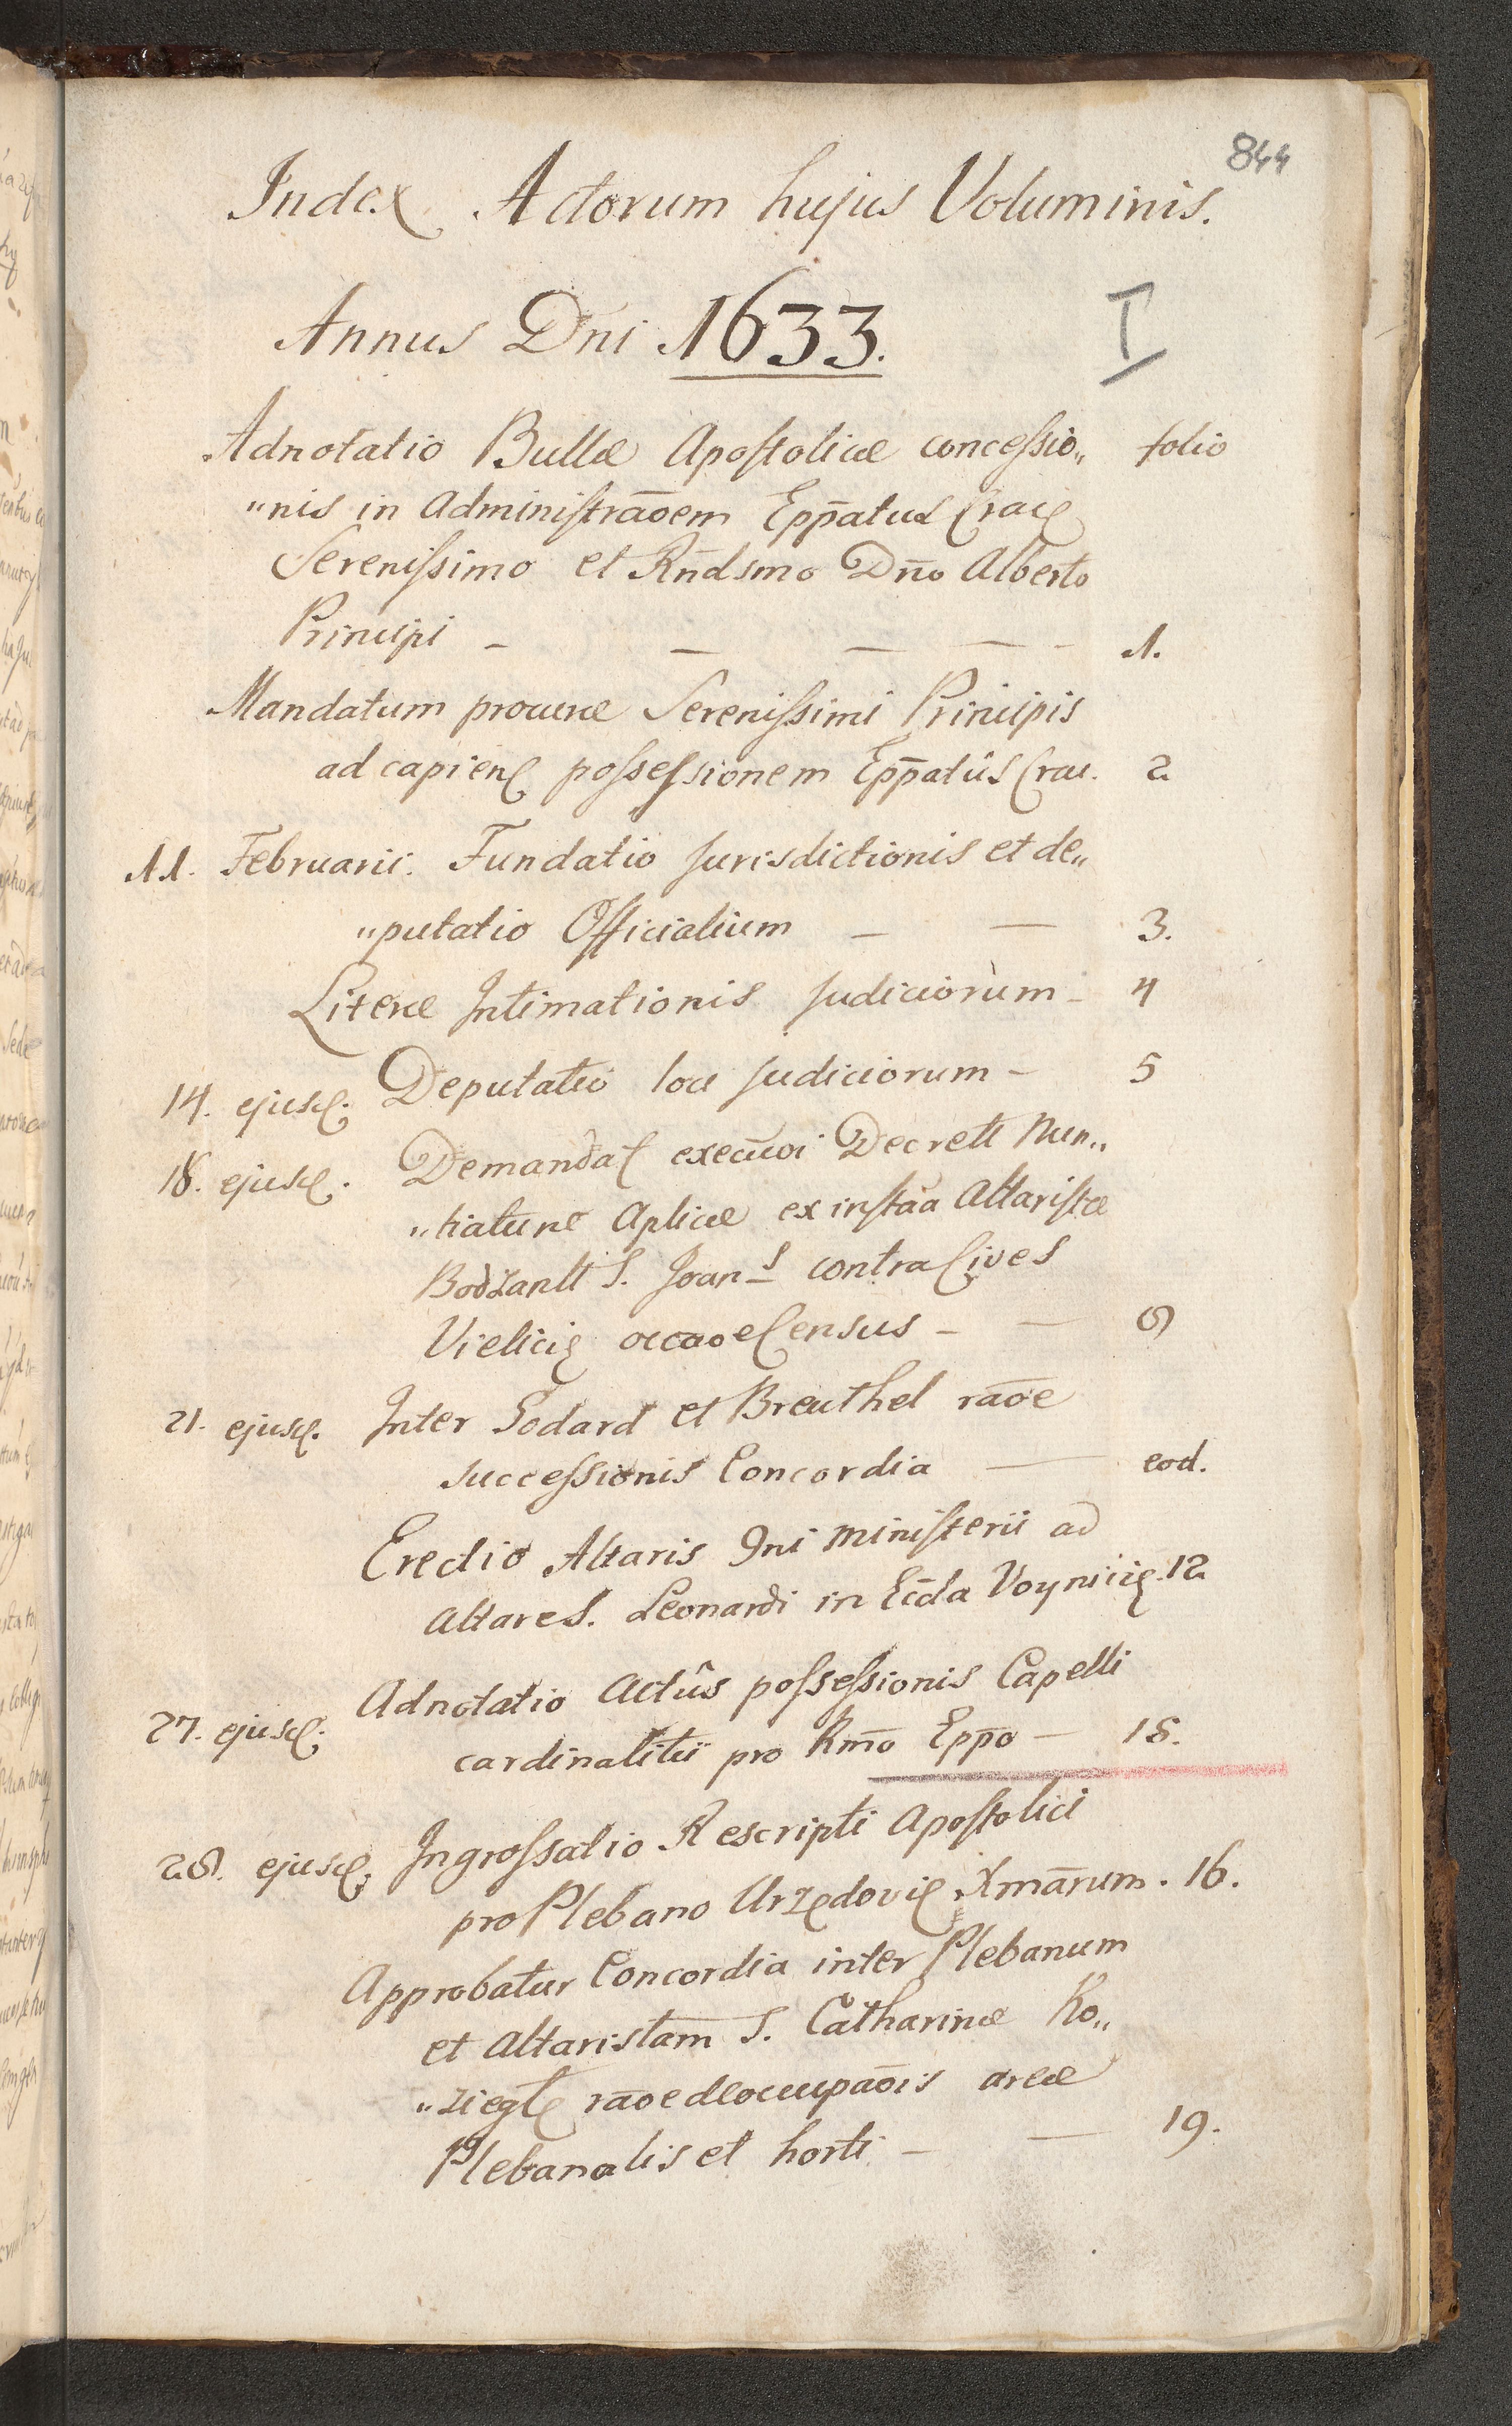 844
Index Actorum hujus Voluminis.
Annus Dni 1633.
I
Adnotatio Bullæ Apostolicæ concessio„ folio
„nis in Administrãoem Epp̄atus Crac
Serenissimo et Rñdsmo Dño Alberto
Principi – – – – 1.
Mandatum procuræ Serenissimi Principis
ad capien possessionem Epp̄atûs Crac. 2
11. Februarii. Fundatio Jurisdictionis et de„
„putatio Officialium – – 3.
Literæ Intimationis Judiciorum – 4
14. ejusd. Deputatio loci Judiciorum – 5
18. ejusd. Demandat execuõi Decreti Nun„
„tiaturæ Aplicæ ex instãa Altaristæ
Bodzanti S. Joans contra Cives
Vielicię occaoe Census – – 6
21. ejusd. Inter Godard et Breuthel rãoe
successionis Concordia – eod.
Erectio Altaris 9ni ministerii ad
Altare S. Leonardi in Eccla Voynicię. 12
27. ejusd. Adnotatio Actûs possessionis Capelli
cardinalitii pro Rmo Eppo – 15.
28. ejusd. Ingrossatio Rescripti Apostolici
pro Plebano Urzędovię Xmarum. 16.
Approbatur Concordia inter Plebanum
et Altaristam S. Catharinæ Ko„
„ziegł rãoe deoccupaõis areæ
Plebanalis et horti – – 19.